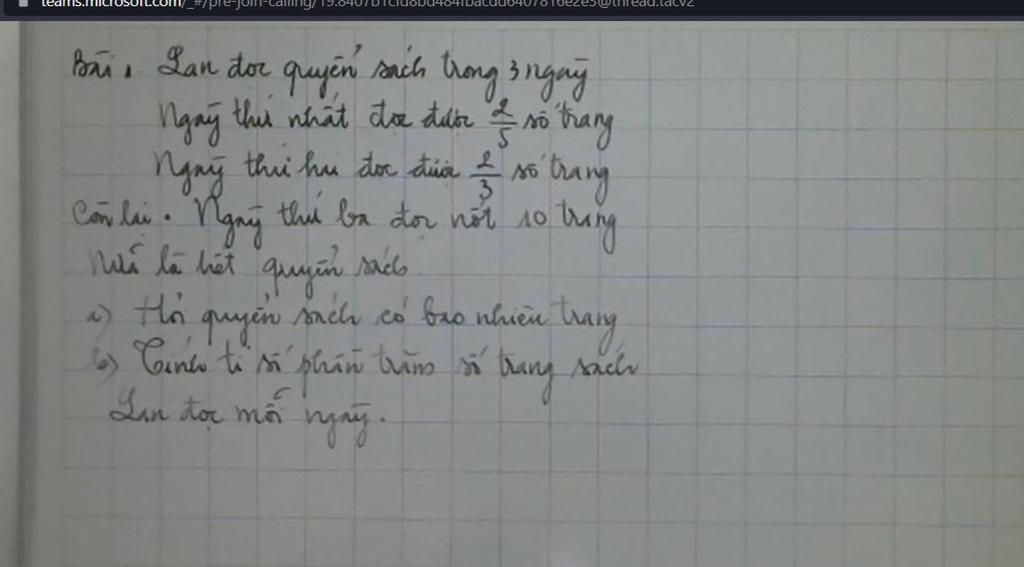 teams.microsoft.com/_#/pre-join-calling/19:8407b1cfd8bd484fbacdd6407816e2e3@thread.tacv2
Bài 1 Lan đọc quyển sách trong 3 ngày
Ngày thứ nhất đọc được 2/5 số trang
Ngày thứ hai đọc được 2/3 số trang
Còn lại. Ngày thứ ba đọc nốt 10 trang
Nữa là hết quyển sách
a) Hỏi quyển sách có bao nhiêu trang
b) Tính tỉ số phần trăm số trang sách
Lan đọc mỗi ngày.